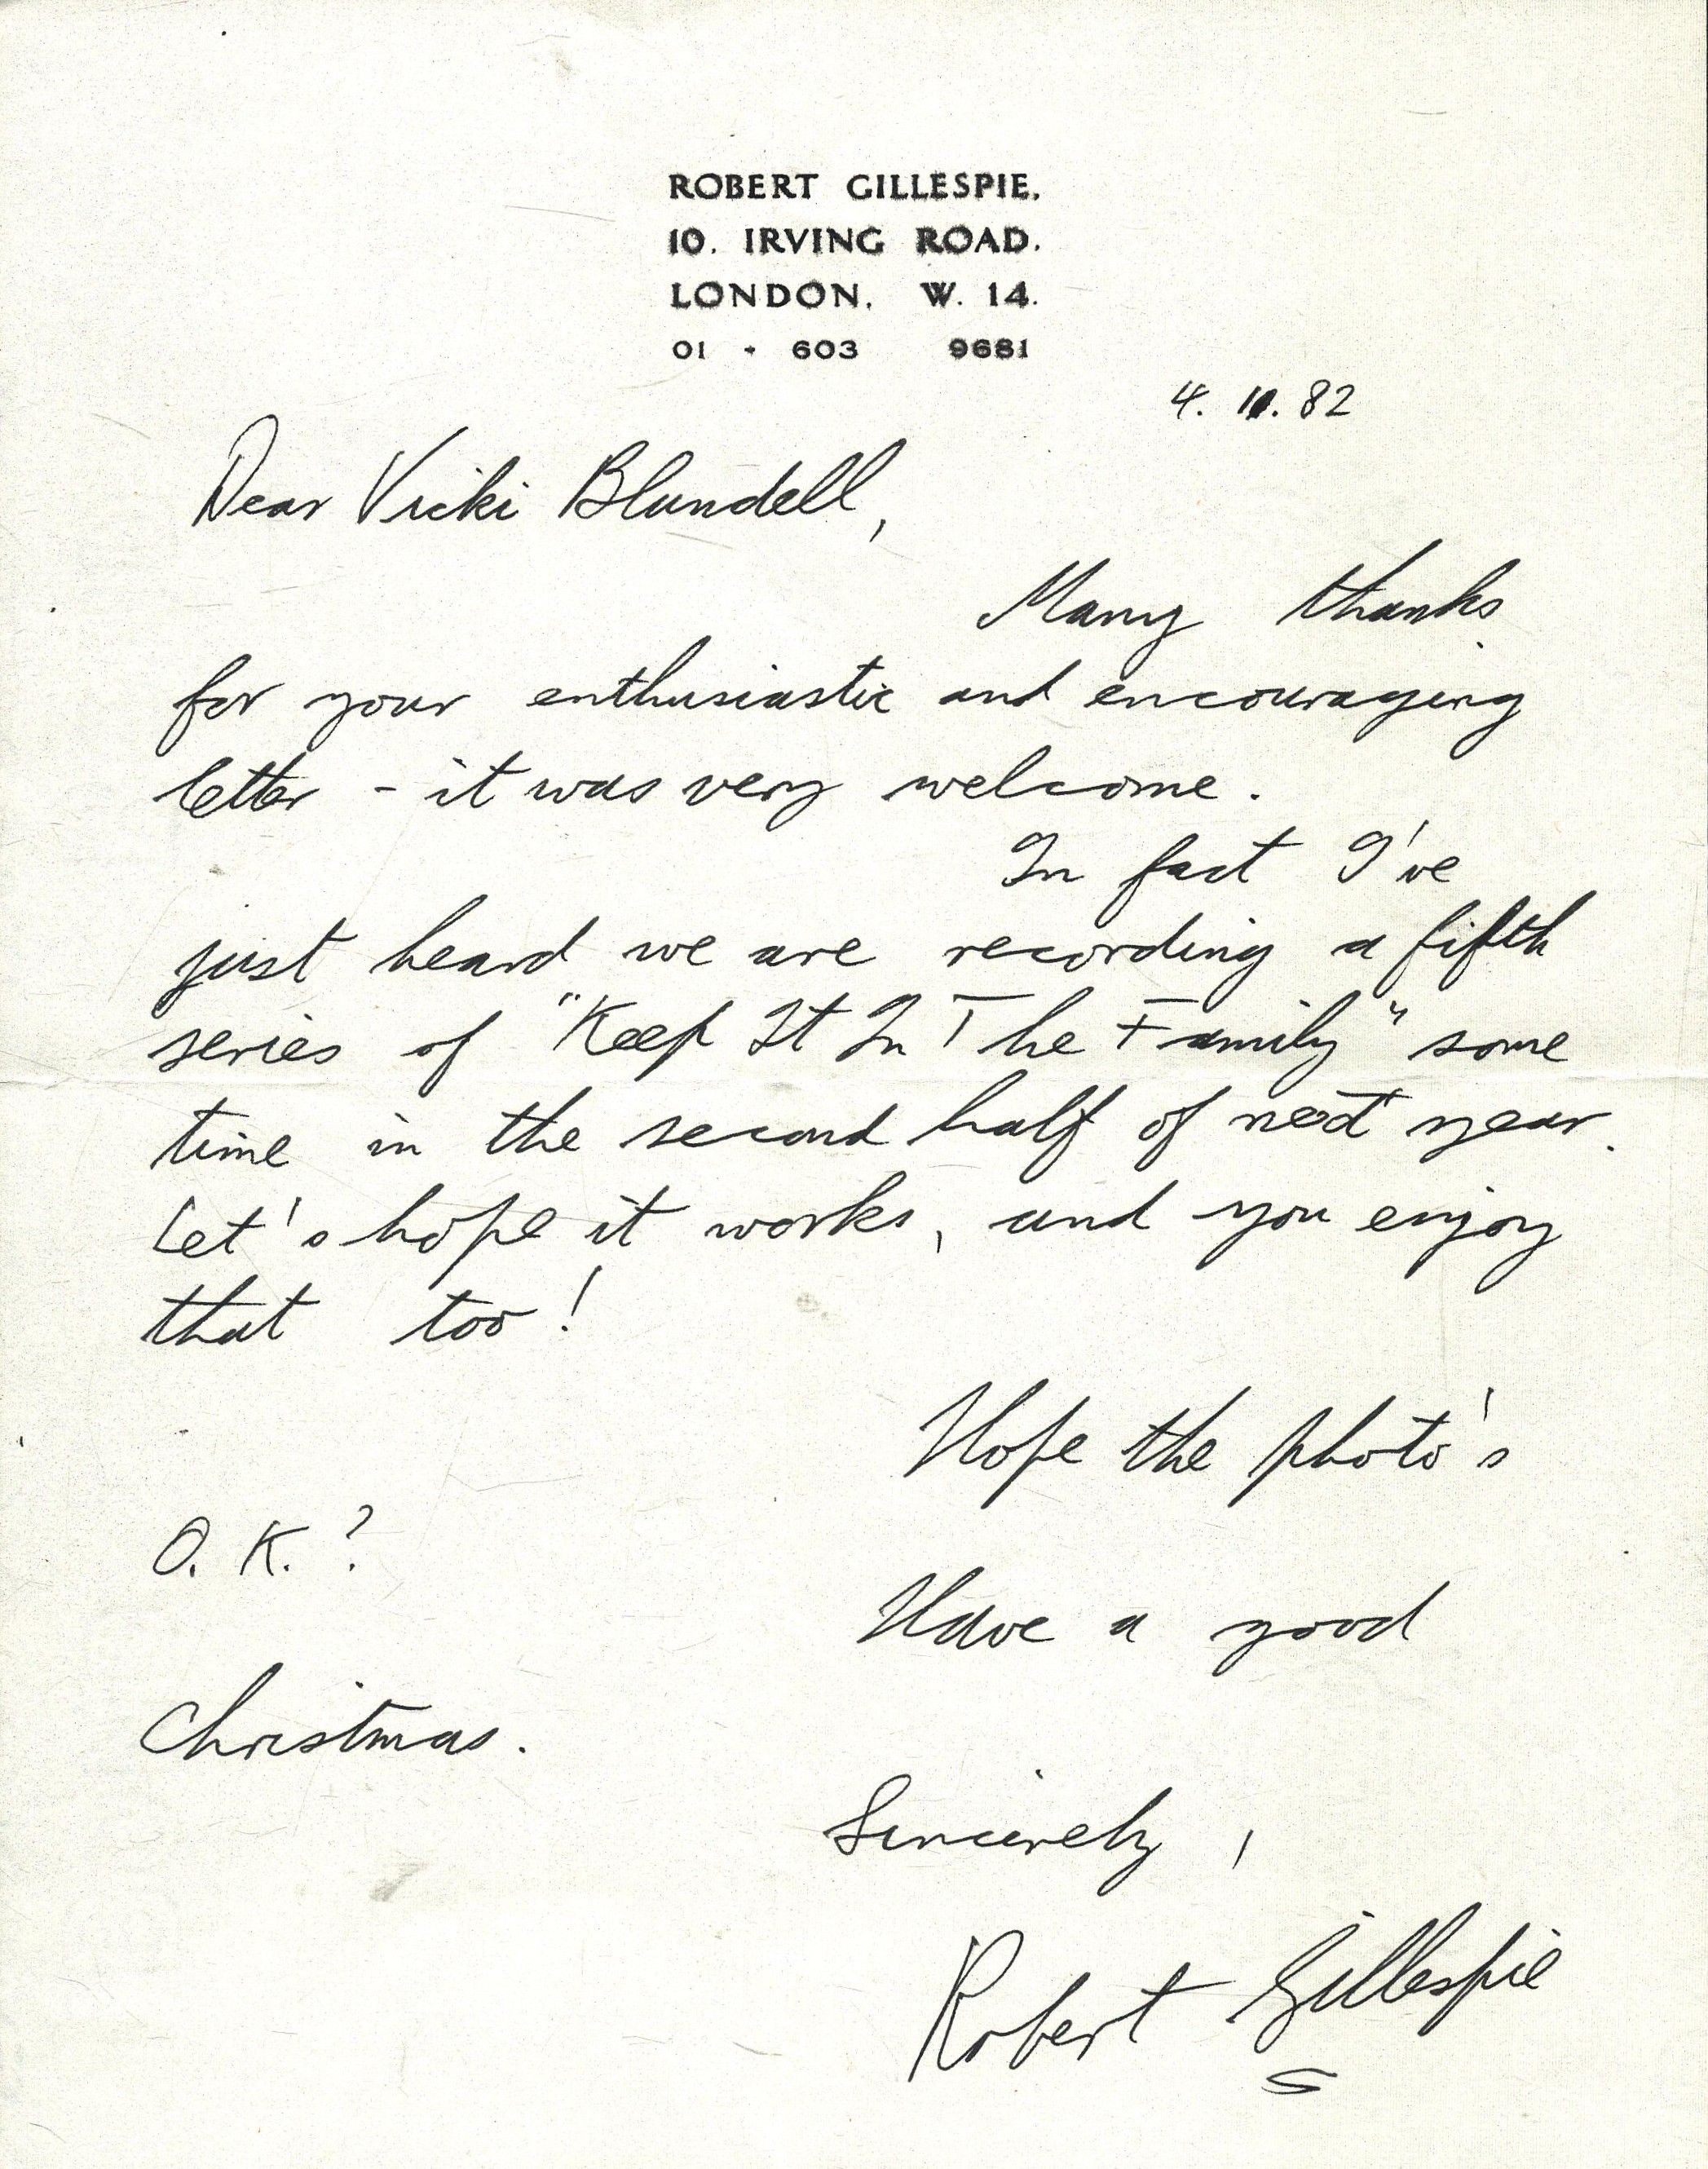 ROBERT GILLESPIE.
10. IRVING ROAD.
LONDON. W. 14.
01 - 603 9681
4. 11. 82
Dear Vicki Blundell,
Many thanks
for your enthusiastic and encouraging
letter - it was very welcome.
In fact I've
just heard we are recording a fifth
series of "Keep It In The Family" some
time in the second half of next year.
Let's hope it works, and you enjoy
that too!
Hope the photo's
O.K.?
Have a good
Christmas.
Sincerely,
Robert Gillespie